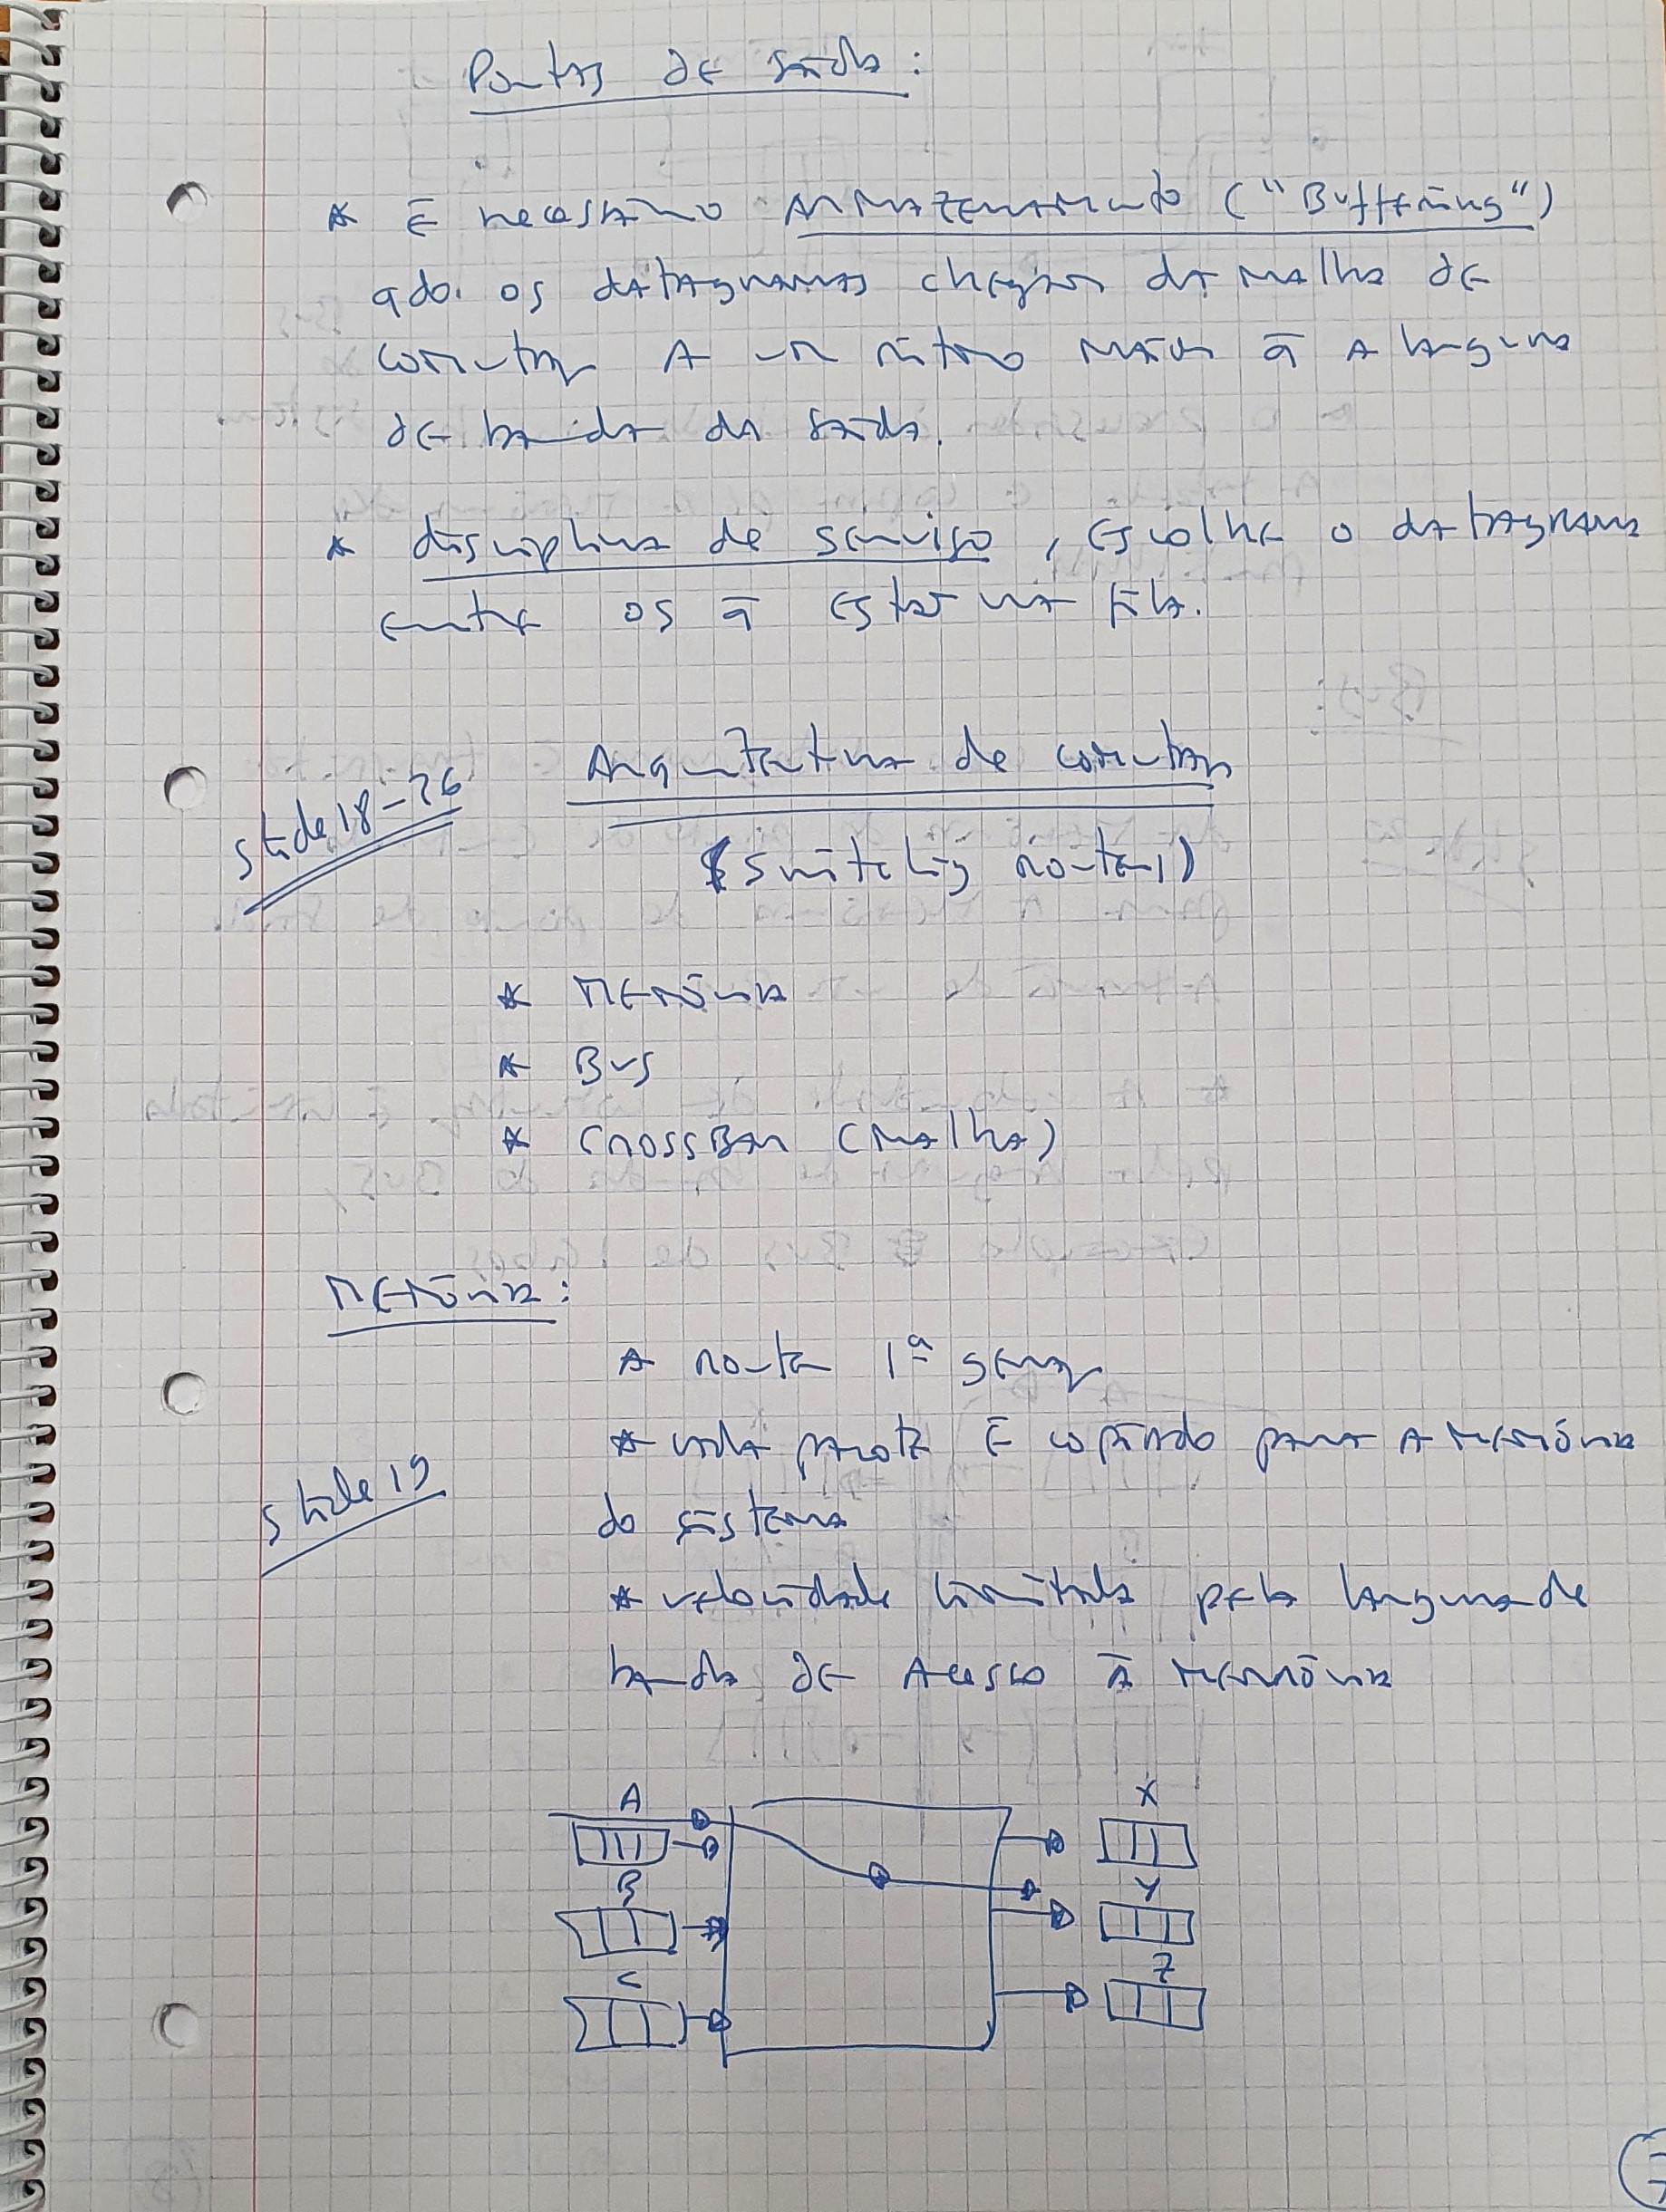 Portas de saída:
* É necessário ARMAZENAMENTO ("Buffering")
qdo. os datagramas chegam da malha de
comutaç A um ritmo maior q̄ A largura
de banda da saída.
* disciplina de serviço, Escolhe o datagrama
entre os q̄ Estão na fila.
slide 18-26
Arquitectura de comutaç
(switching router)
* MEMÓRIA
* BUS
* CROSSBAR (MAlha)
MEMÓRIA:
* router 1ª geraç
* cada pacote É copiado para A memória
do sistema
slide 19
* velocidade limitada pela largura de
banda de Acesso à memória
A X
B Y
C Z
7